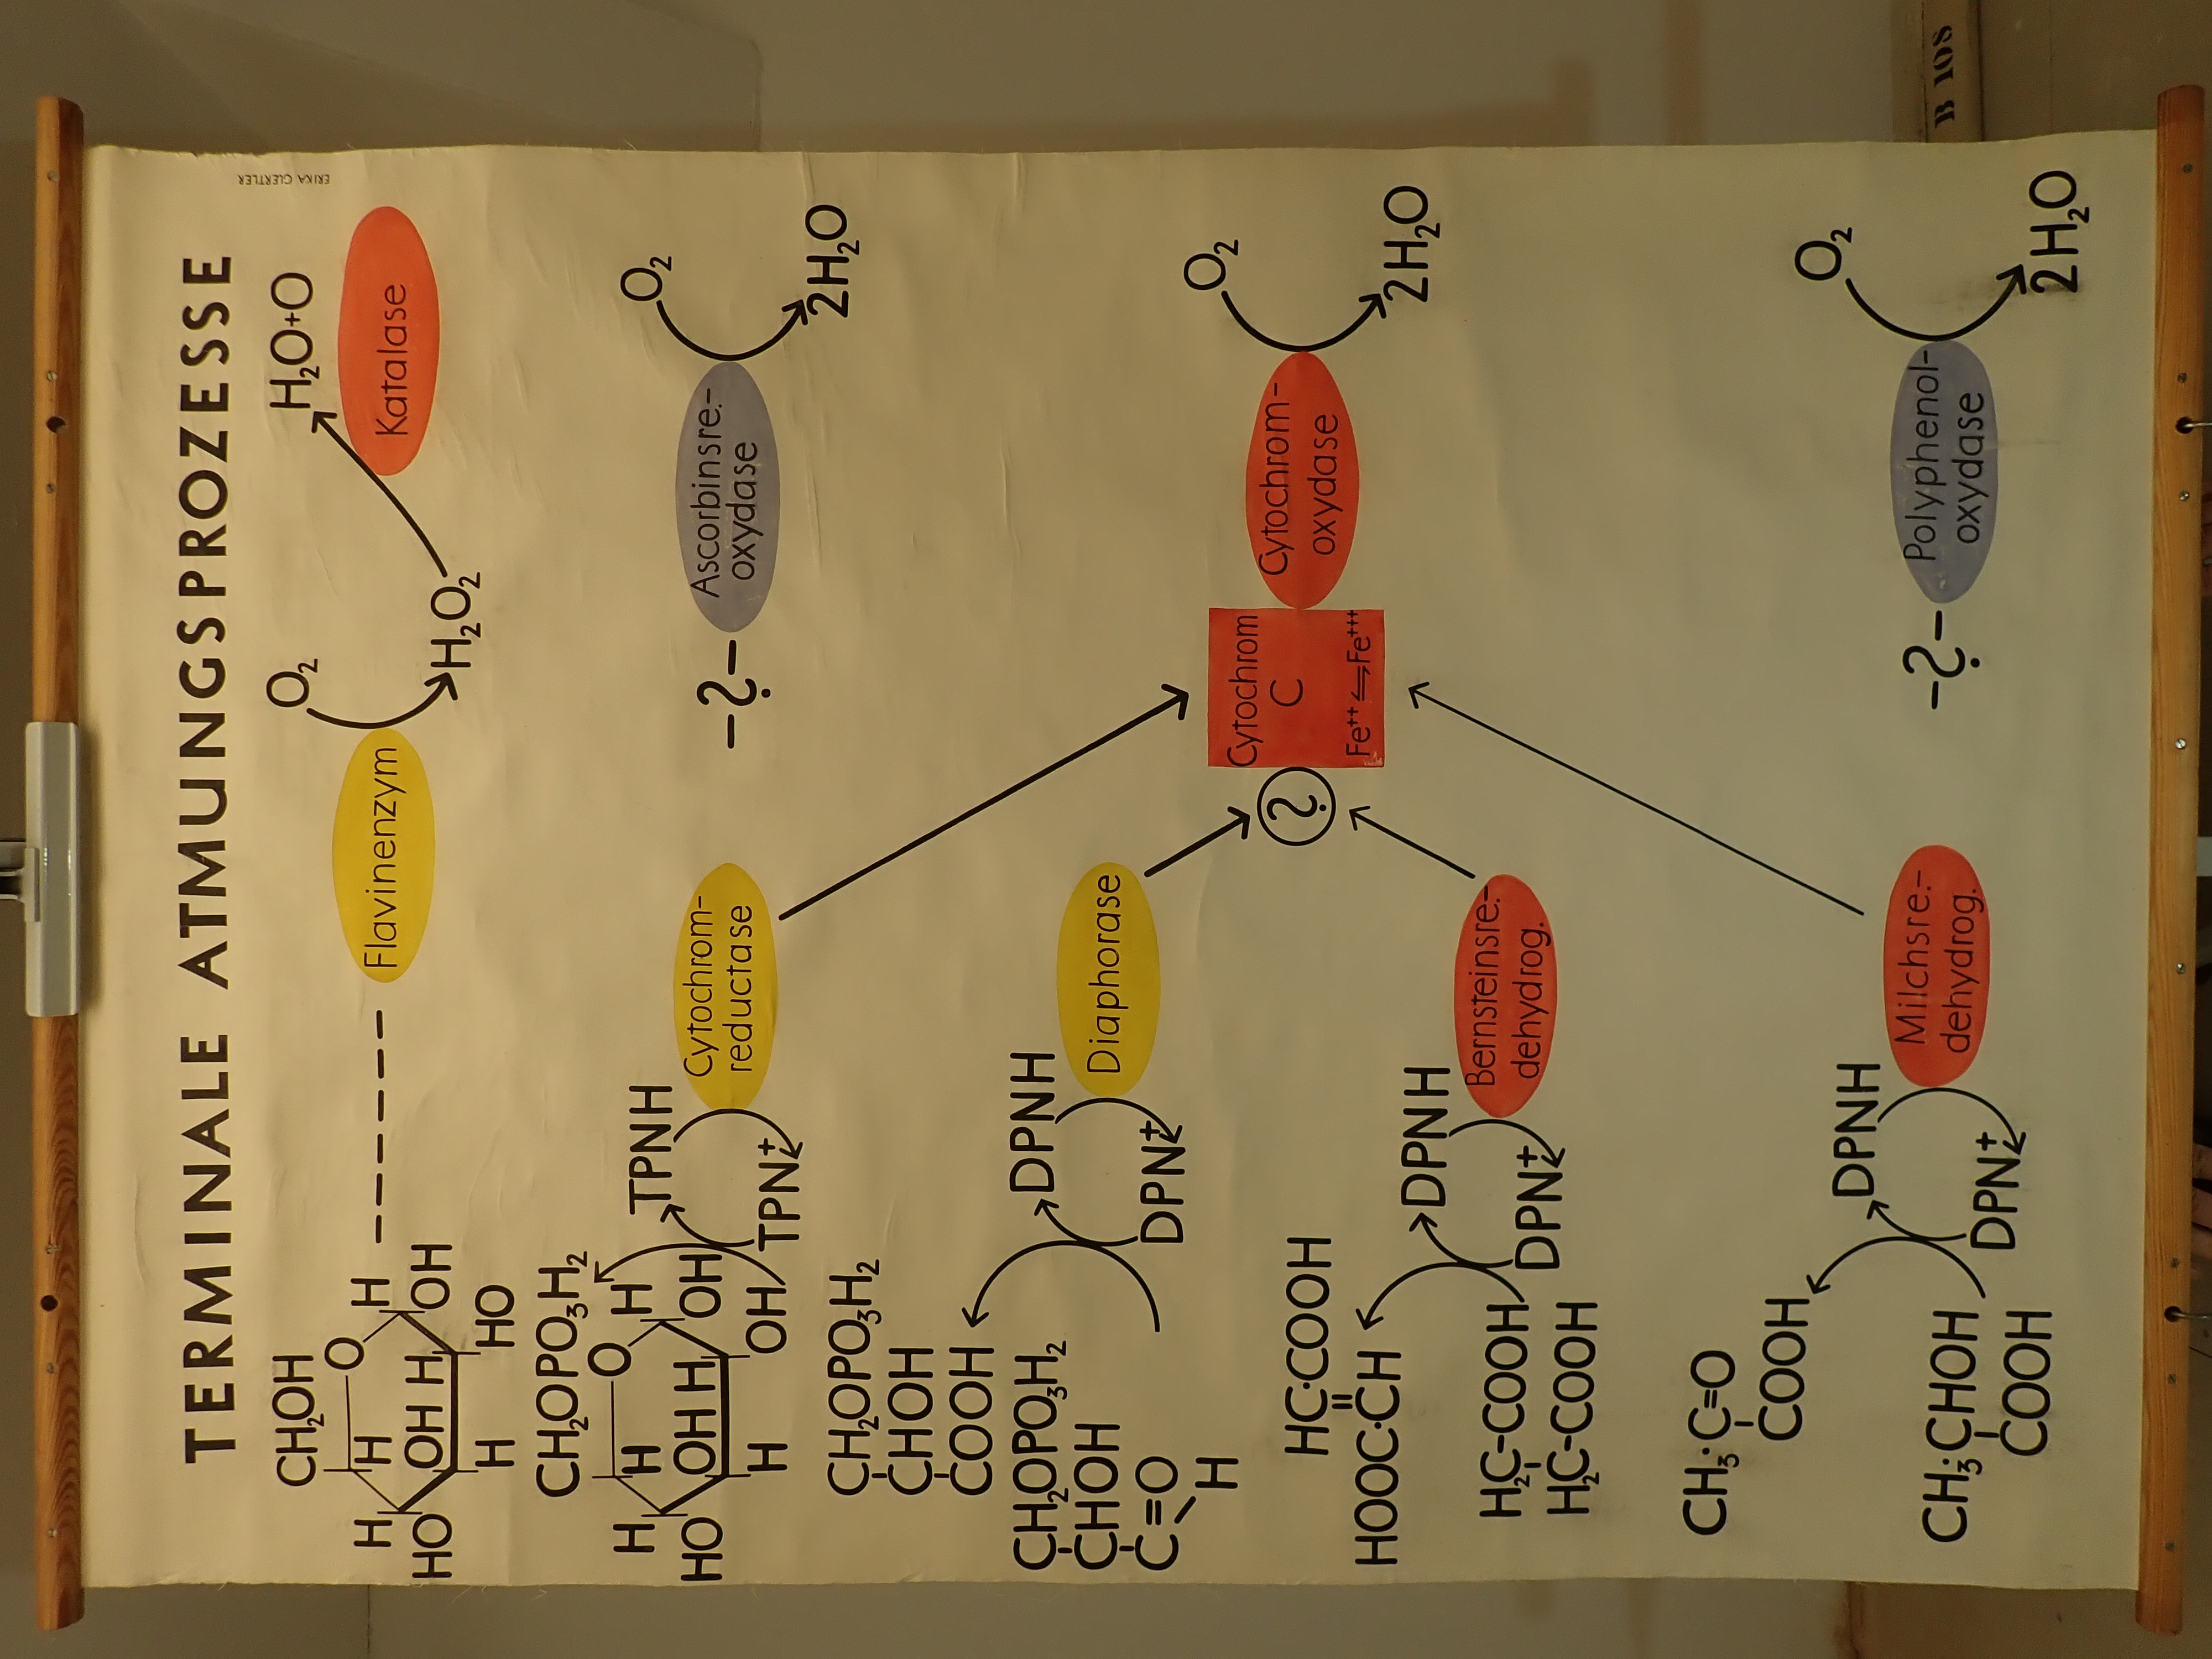 TERMINALE ATMUNGSPROZESSE
ERIKA GUERTLER
B 108
CH₂OH
H
O
H
H
OH
H
OH
HO
H
HO
Flavinenzym
O₂
H₂O₂
H₂O+O
Katalase
CH₂OPO₃H₂
H
O
H
H
OH
H
OH
HO
H
OH
TPNH
TPN⁺
Cytochrom-
reductase
-?-
Ascorbinsre.-
oxydase
O₂
2H₂O
CH₂OPO₃H₂
CHOH
COOH
CH₂OPO₃H₂
CHOH
C=O
H
DPNH
DPN⁺
Diaphorase
?
Cytochrom
C
Fe⁺⁺⇌Fe⁺⁺⁺
Cytochrom-
oxydase
O₂
2H₂O
HC·COOH
HOOC·CH
H₂C-COOH
H₂C-COOH
DPNH
DPN⁺
Bernsteinsre.-
dehydrog.
CH₃·C=O
COOH
CH₃·CHOH
COOH
DPNH
DPN⁺
Milchsre.-
dehydrog.
-?-
Polyphenol-
oxydase
O₂
2H₂O